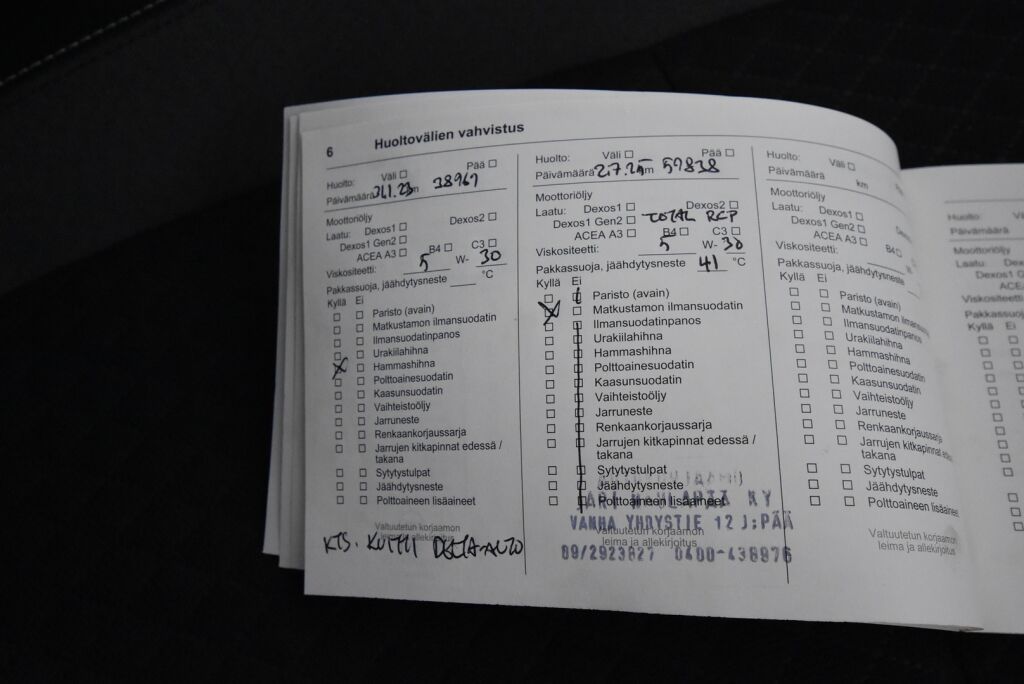 6 Huoltovälien vahvistus
Huolto: Väli Pää
Päivämäärä km 38967
Moottoriöljy
Laatu: Dexos1 Dexos2
Dexos1 Gen2
ACEA A3 B4 C3
Viskositeetti: 5 W- 30
Pakkassuoja, jäähdytysneste °C
Kyllä Ei
Paristo (avain)
Matkustamon ilmansuodatin
Ilmansuodatinpanos
Urakiilahihna
Hammashihna
Polttoainesuodatin
Kaasunsuodatin
Vaihteistoöljy
Jarruneste
Renkaankorjaussarja
Jarrujen kitkapinnat edessä /
takana
Sytytystulpat
Jäähdytysneste
Polttoaineen lisäaineet
Valtuutetun korjaamon
leima ja allekirjoitus
KTS. KUITTI DELTA-AUTO
Huolto: Väli Pää
Päivämäärä 2.7.25 km 59838
Moottoriöljy
Laatu: Dexos1 Dexos2
Dexos1 Gen2 TOTAL
ACEA A3 B4 C3
Viskositeetti: 5 W- 30
Pakkassuoja, jäähdytysneste 41 °C
Kyllä Ei
Paristo (avain)
Matkustamon ilmansuodatin
Ilmansuodatinpanos
Urakiilahihna
Hammashihna
Polttoainesuodatin
Kaasunsuodatin
Vaihteistoöljy
Jarruneste
Renkaankorjaussarja
Jarrujen kitkapinnat edessä /
takana
Sytytystulpat
Jäähdytysneste
Polttoaineen lisäaineet
KY
VANHA YHDYSTIE 12 J:PÄÄ
Valtuutetun korjaamon
leima ja allekirjoitus
09/2923827 0400-438976
Huolto: Väli
Päivämäärä km
Moottoriöljy
Laatu: Dexos1
Dexos1 Gen2
ACEA A3 B4
Viskositeetti: W-
Pakkassuoja, jäähdytysneste
Kyllä Ei
Paristo (avain)
Matkustamon
Ilmansuodatinpanos
Urakiilahihna
Hammashihna
Polttoainesuodatin
Kaasunsuodatin
Vaihteistoöljy
Jarruneste
Renkaankorjaussarja
Jarrujen kitkapinnat
takana
Sytytystulpat
Jäähdytysneste
Polttoaineen
Valtuutetun korjaamon
leima ja allekirjoitus
Huolto:
Päivämäärä
Moottoriöljy
Laatu:
Dexos1
Viskositeetti
Kyllä Ei